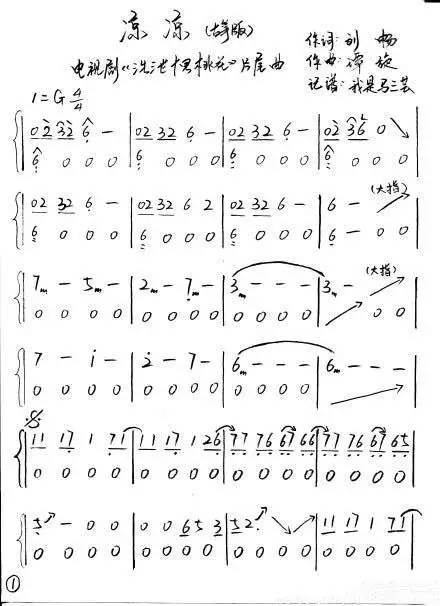 凉 凉 (古筝版)
作词: 刘 畅
电视剧《三生三世十里桃花》片尾曲
作曲: 谭 旋
记谱: 我是马三芸
1=G 4/4
02 32 6 - | 02 32 6 - | 02 32 6 - | 02 36 0
6 0 0 0 | 6 0 0 0 | 6 0 0 0 | 6 0 0 0
(大指)
02 32 6 - | 02 32 6 2 | 02 32 6 - | 6 -
6 0 0 0 | 6 0 0 0 | 6 0 0 0 | 6 - 0 0
(大指)
7m - 5m - | 2m - 7m - | 3m - - - | 3m -
0 0 0 0 | 0 0 0 0 | 0 0 0 0 | 0 0
7 - i - | 2 - 7 - | 6m - - - | 6m - - -
0 0 0 0 | 0 0 0 0 | 0 0 0 0 |
11 17 1 71 | 11 17 1 26 | 77 76 67 66 | 77 76 67 65
0 0 0 0 | 0 0 0 0 | 0 0 0 0 | 0 0 0 0
5 - 0 0 | 0 0 65 3 | 52 | 11 17 1 71
0 0 0 0 | 0 0 0 0 | 0 0 0 0 | 0 0 0 0
①